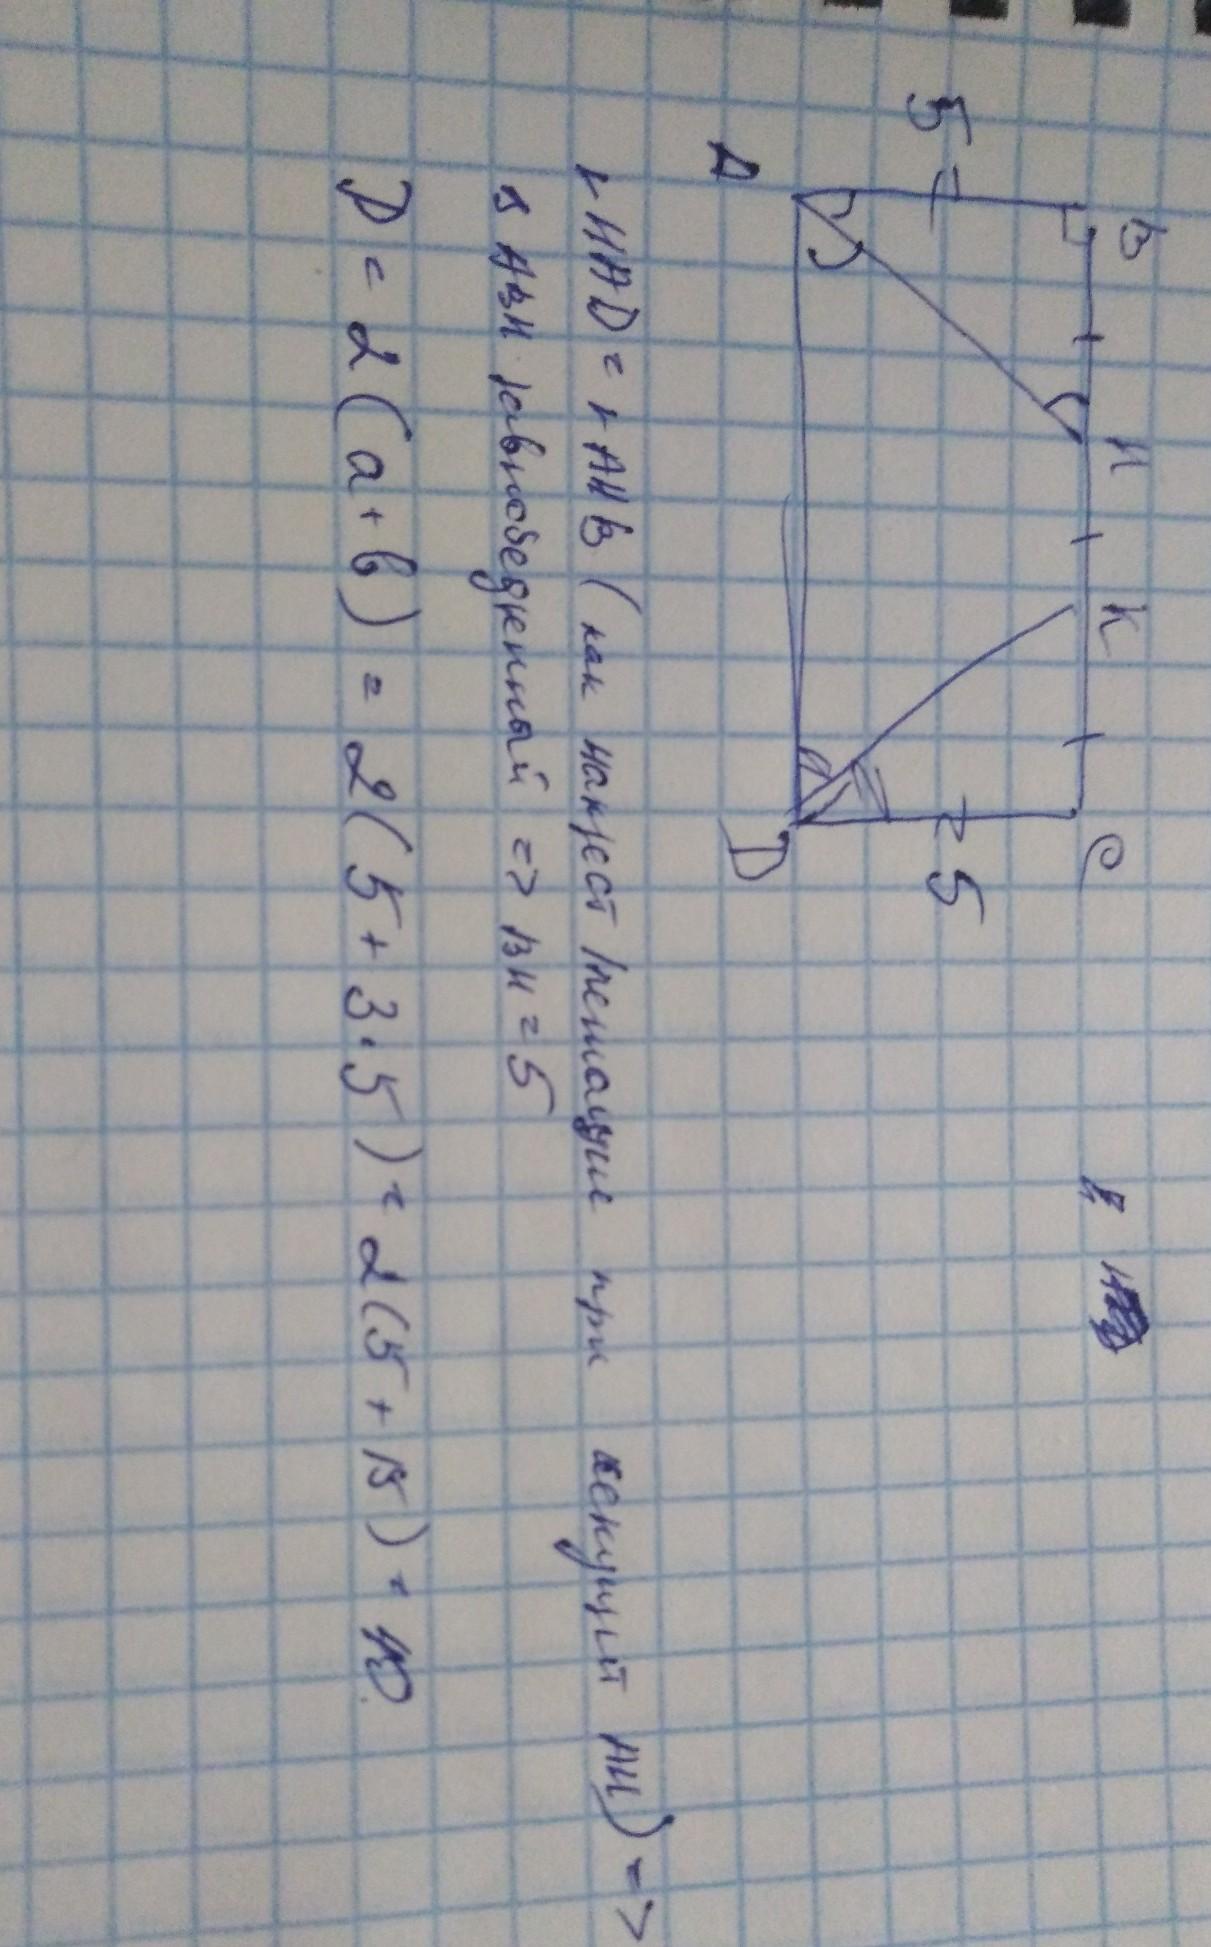 B H K C
5 5
A D
∟HAD = ∟AHB (как накрест лежащие при секущей AH) =>
Δ ABH равнобедренный => BH = 5
P = 2(a+b) = 2(5+3·5) = 2(5+15) = 40.